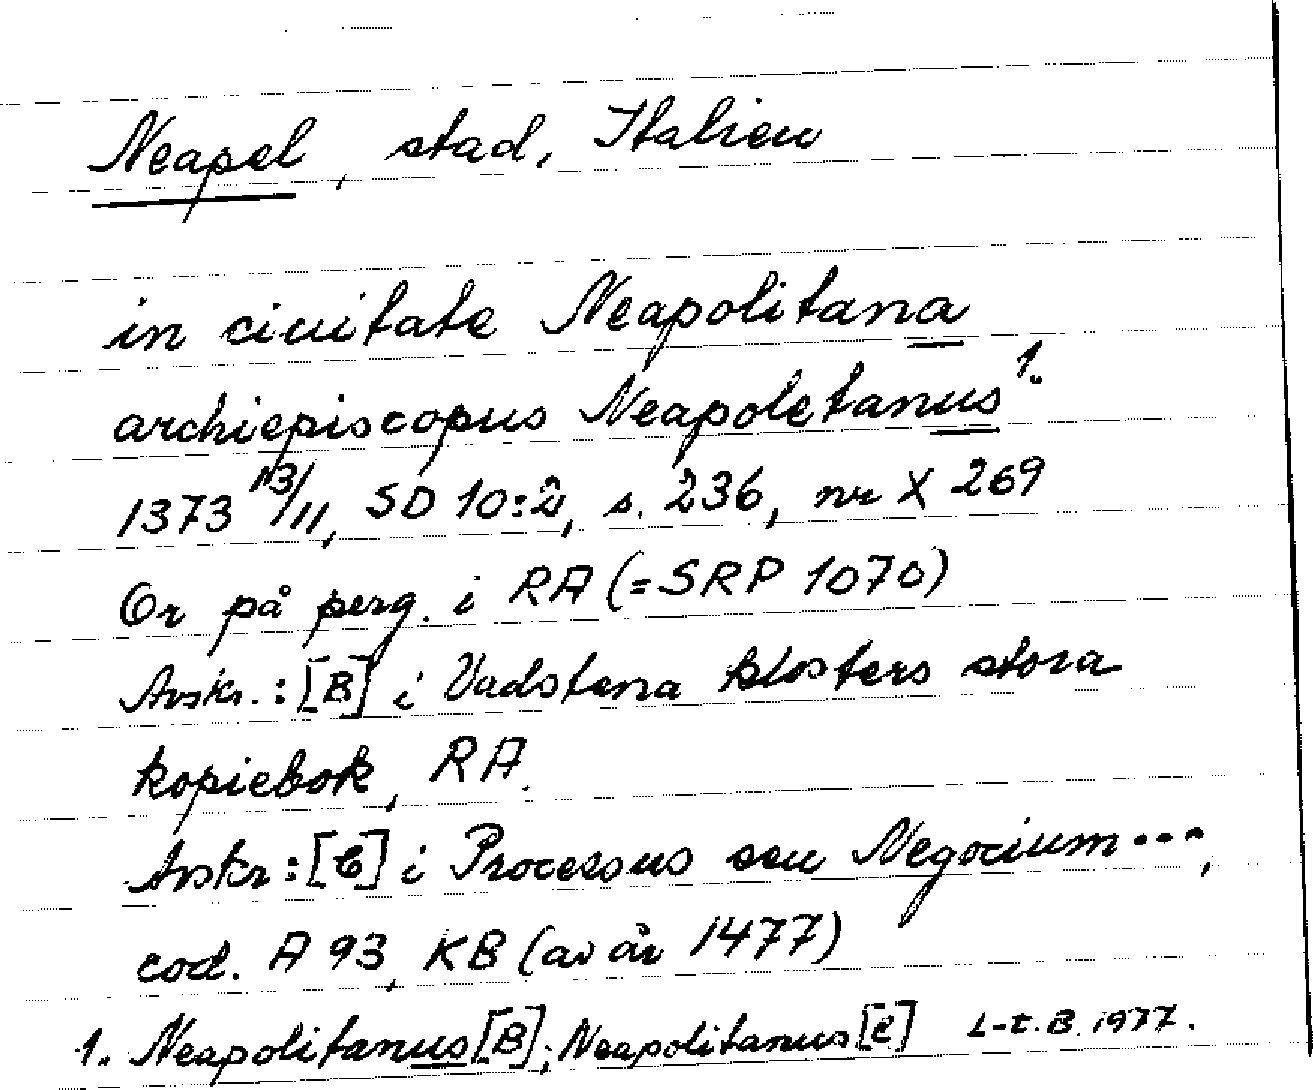 Neapel, stad, Italien
in ciuitate Neapolitana
archiepiscopus Neapoletanus 1.
1373 13/11, SD 10:2, s. 236, nr X 269
Or på perg. i RA (=SRP 1070)
Avskr.: [B] i Vadstena klosters stora
kopiebok, RA.
Avskr: [C] i Processus seu Negocium...,
cod. A 93, KB (av år 1477)
1. Neapolitanus [B]; Neapolitanus [C] L-t. B. 1977.